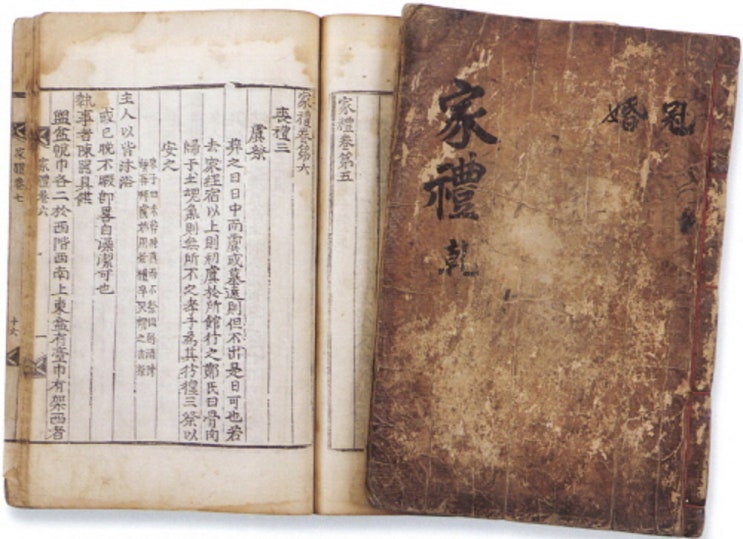 冠
婚
家禮 乾
家禮卷第五
家禮卷第六
喪禮三
虞祭
葬之日日中而虞或墓遠則但不出是日可也若
去家經宿以上則初虞於所館行之鄭氏曰骨肉
歸于土魂氣則無所不之孝子為其彷徨三祭以
安之
朱子曰未葬時奠而不祭但酌酒陳
饌再拜虞始用祭禮卒哭謂之吉祭
主人以皆沐浴
或已晚不暇即畧自澡潔可也
執事者陳器具饌
盥盆帨巾各二於西階西南上東盆有臺巾有架西者
家禮卷六 一
家禮卷七 十六